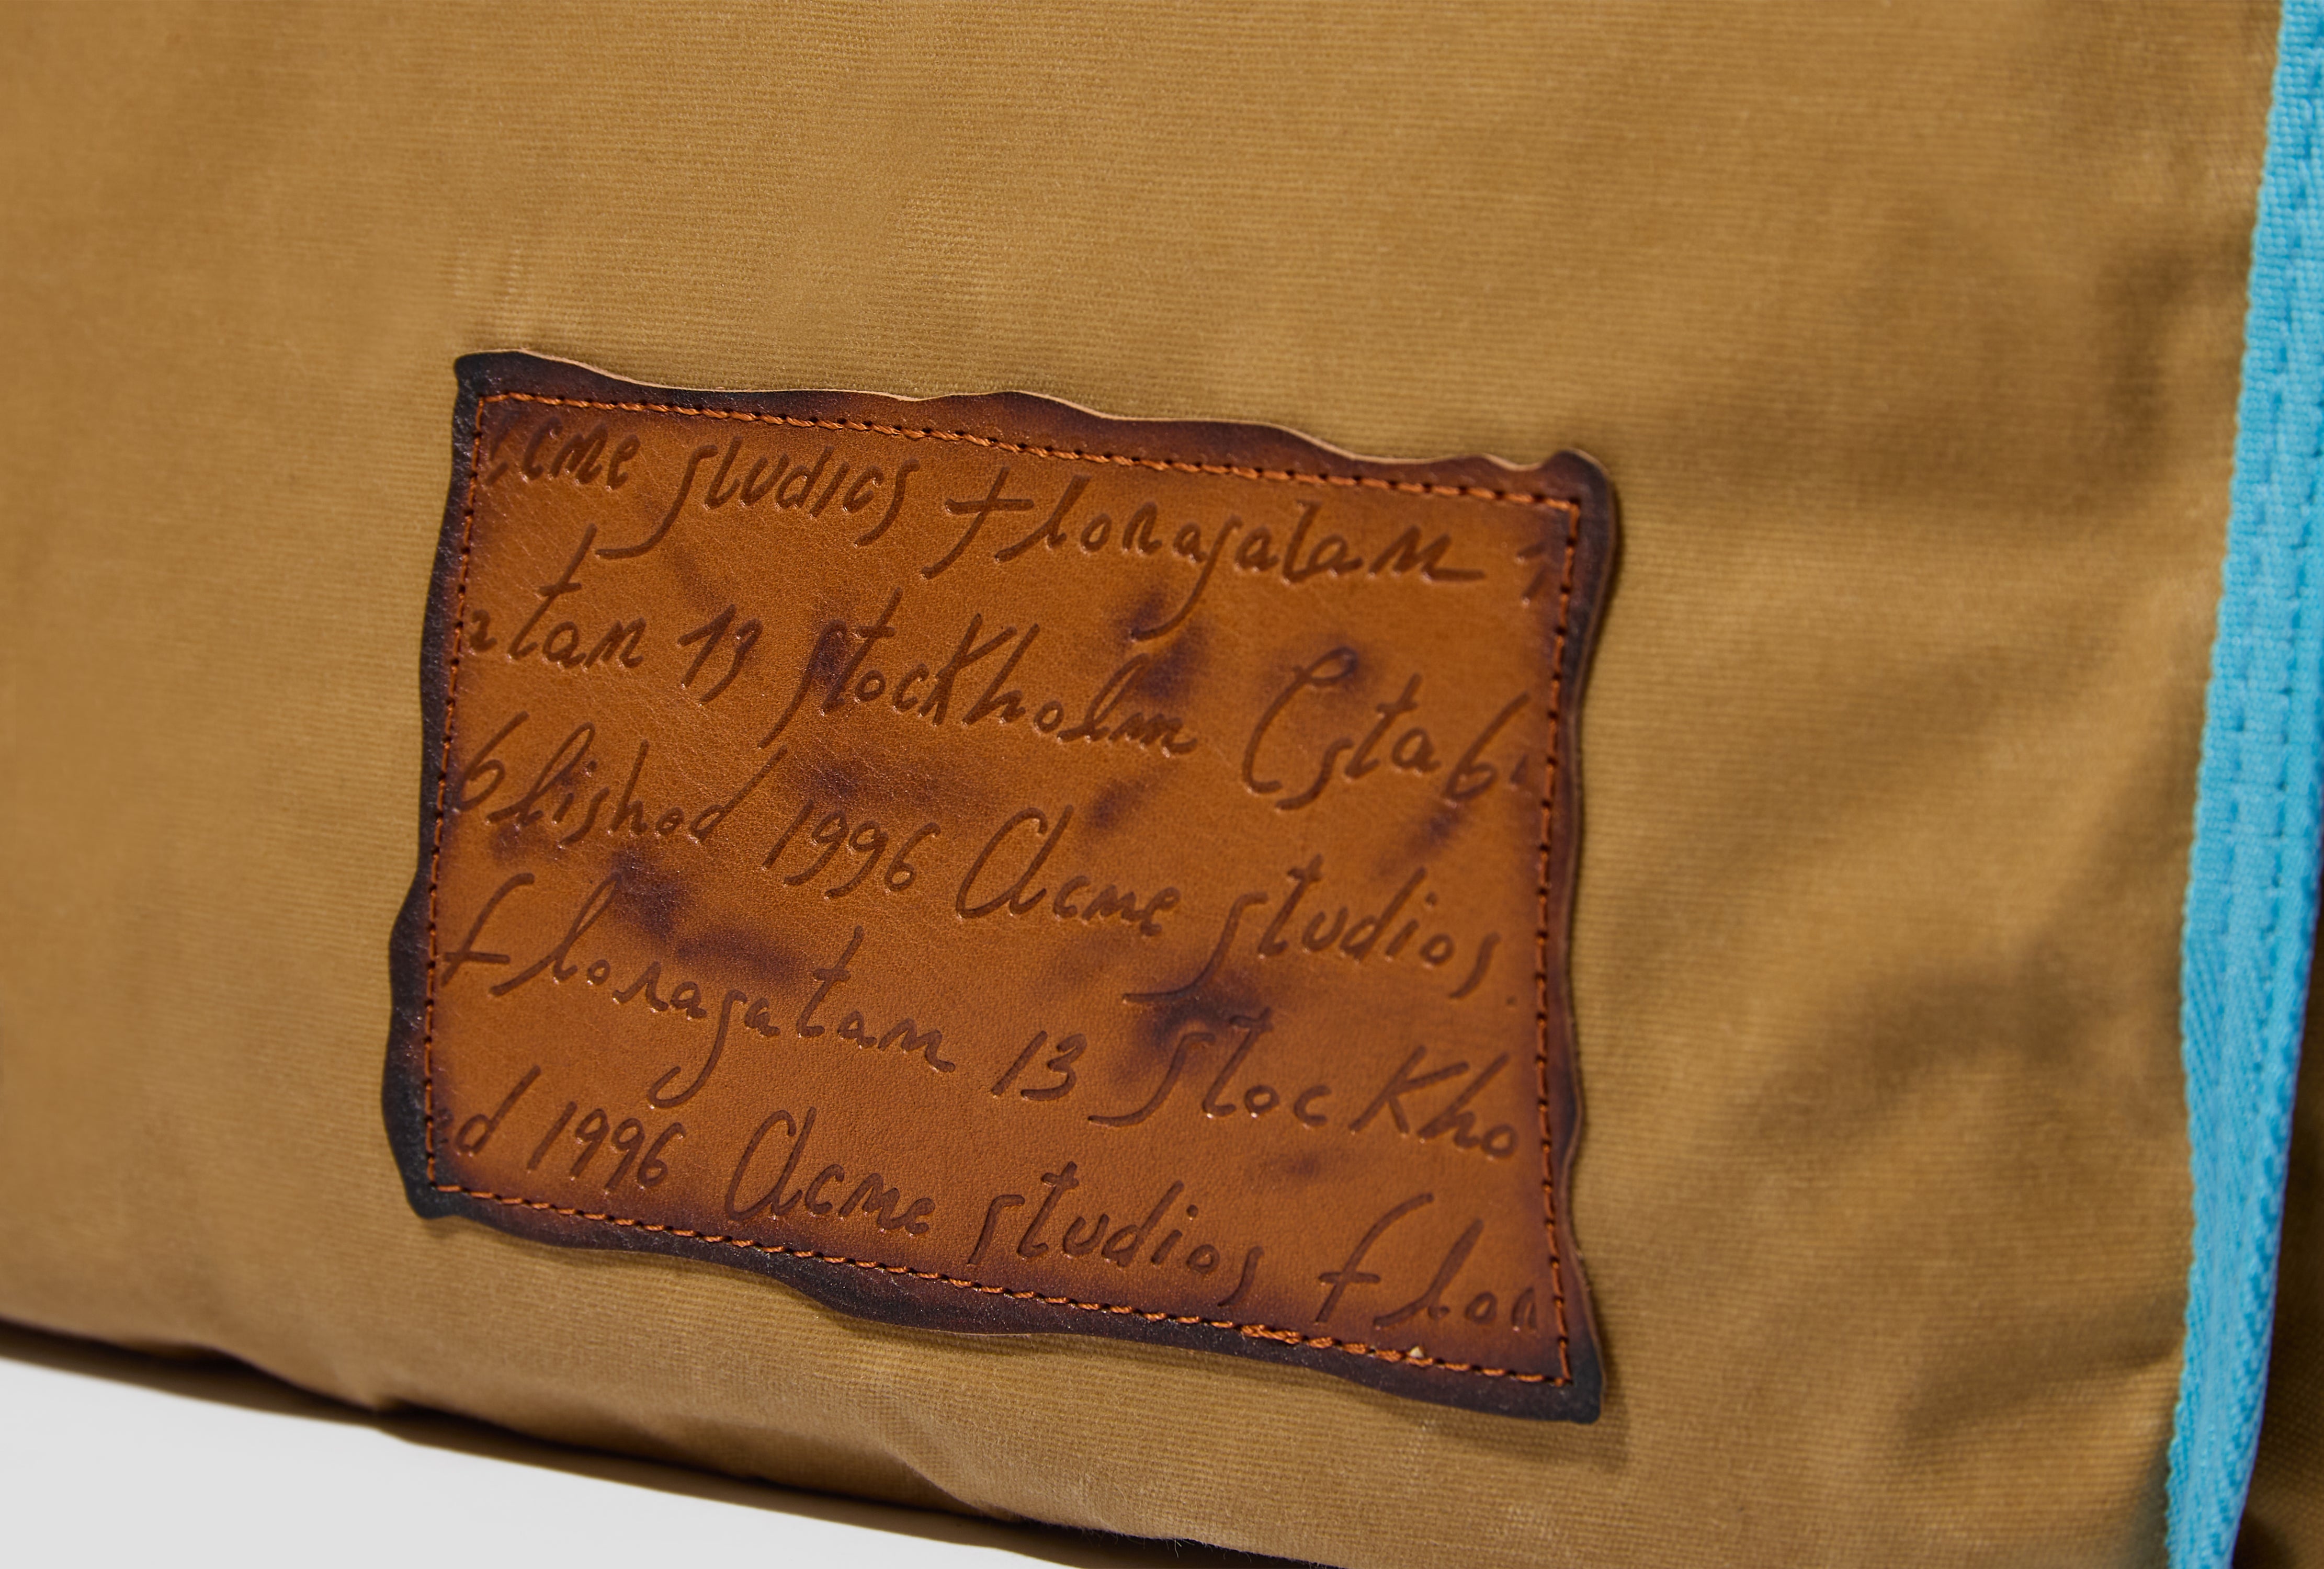 cme studios floragatan 1
atan 13 stockholm Estab
blished 1996 Acme studios.
floragatan 13 Stockho
ed 1996 Acme studios flor